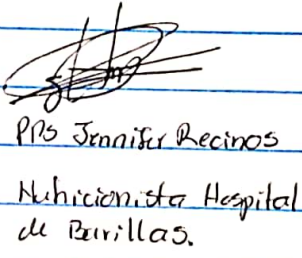 PPS Jennifer Recinos
Nutricionista Hospital
de Barillas.